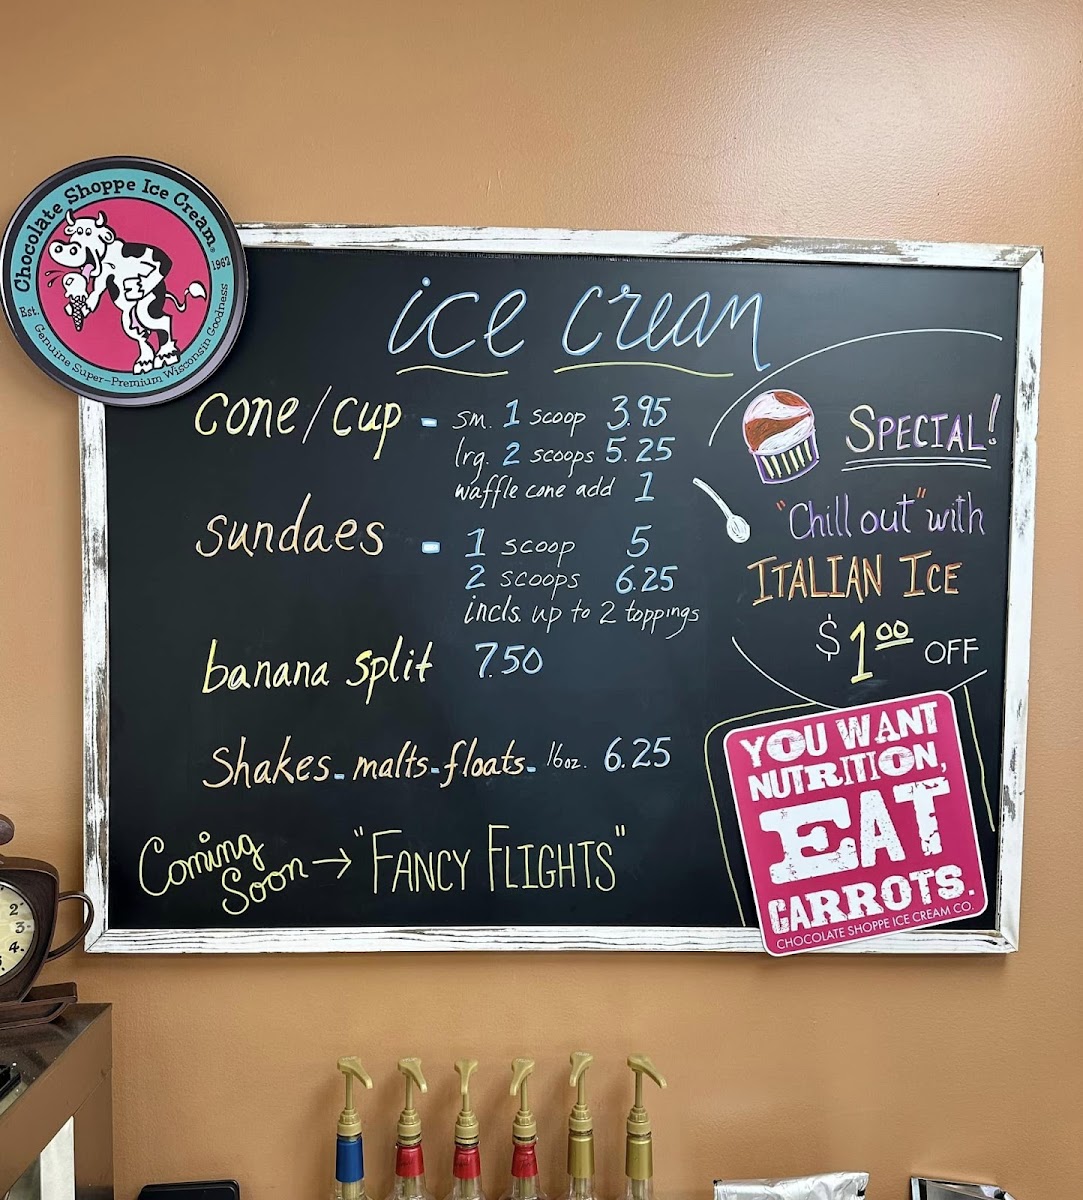 Chocolate Shoppe Ice Cream
Est. 1962
Genuine Super-Premium Wisconsin Goodness
ice cream
cone/cup - sm. 1 scoop 3.95
lrg. 2 scoops 5.25
waffle cone add 1
sundaes - 1 scoop 5
2 scoops 6.25
incls. up to 2 toppings
banana split 7.50
Shakes - malts - floats - 16oz. 6.25
Coming
Soon → "FANCY FLIGHTS"
SPECIAL!
"Chill out" with
ITALIAN ICE
$1.00 OFF
YOU WANT
NUTRITION,
EAT
CARROTS.
CHOCOLATE SHOPPE ICE CREAM CO.
2
3
4